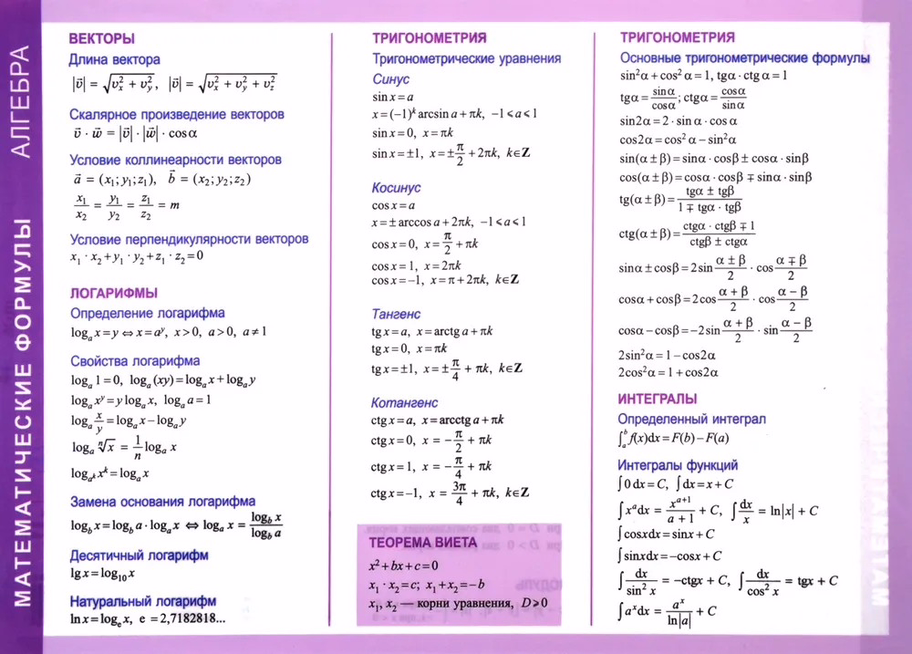 МАТЕМАТИЧЕСКИЕ ФОРМУЛЫ АЛГЕБРА
ВЕКТОРЫ
Длина вектора
|v⃗| = √(v²ₓ + v²ᵧ), |v⃗| = √(v²ₓ + v²ᵧ + v²_z)
Скалярное произведение векторов
v⃗ · w⃗ = |v⃗| · |w⃗| · cosα
Условие коллинеарности векторов
a⃗ = (x₁; y₁; z₁), b⃗ = (x₂; y₂; z₂)
x₁/x₂ = y₁/y₂ = z₁/z₂ = m
Условие перпендикулярности векторов
x₁ · x₂ + y₁ · y₂ + z₁ · z₂ = 0
ЛОГАРИФМЫ
Определение логарифма
logₐ x = y ⇔ x = aʸ, x > 0, a > 0, a ≠ 1
Свойства логарифма
logₐ 1 = 0, logₐ (xy) = logₐ x + logₐ y
logₐ xʸ = y logₐ x, logₐ a = 1
logₐ x/y = logₐ x − logₐ y
logₐ ⁿ√x = 1/n logₐ x
log_aᵏ xᵏ = logₐ x
Замена основания логарифма
log_b x = log_b a · logₐ x ⇔ logₐ x = log_b x / log_b a
Десятичный логарифм
lg x = log₁₀ x
Натуральный логарифм
ln x = logₑ x, e = 2,7182818...
ТРИГОНОМЕТРИЯ
Тригонометрические уравнения
Синус
sin x = a
x = (−1)ᵏ arcsin a + πk, −1 < a < 1
sin x = 0, x = πk
sin x = ±1, x = ± π/2 + 2πk, k∈Z
Косинус
cos x = a
x = ± arccos a + 2πk, −1 < a < 1
cos x = 0, x = π/2 + πk
cos x = 1, x = 2πk
cos x = −1, x = π + 2πk, k∈Z
Тангенс
tg x = a, x = arctg a + πk
tg x = 0, x = πk
tg x = ±1, x = ± π/4 + πk, k∈Z
Котангенс
ctg x = a, x = arcctg a + πk
ctg x = 0, x = − π/2 + πk
ctg x = 1, x = − π/4 + πk
ctg x = −1, x = 3π/4 + πk, k∈Z
ТЕОРЕМА ВИЕТА
x² + bx + c = 0
x₁ · x₂ = c; x₁ + x₂ = −b
x₁, x₂ — корни уравнения, D ⩾ 0
ТРИГОНОМЕТРИЯ
Основные тригонометрические формулы
sin²α + cos²α = 1, tgα · ctgα = 1
tgα = sinα/cosα; ctgα = cosα/sinα
sin2α = 2 · sinα · cosα
cos2α = cos²α − sin²α
sin(α ± β) = sinα · cosβ ± cosα · sinβ
cos(α ± β) = cosα · cosβ ∓ sinα · sinβ
tg(α ± β) = (tgα ± tgβ)/(1 ∓ tgα · tgβ)
ctg(α ± β) = (ctgα · ctgβ ∓ 1)/(ctgβ ± ctgα)
sinα ± cosβ = 2sin (α ± β)/2 · cos (α ∓ β)/2
cosα + cosβ = 2cos (α + β)/2 · cos (α − β)/2
cosα − cosβ = −2sin (α + β)/2 · sin (α − β)/2
2sin²α = 1 − cos2α
2cos²α = 1 + cos2α
ИНТЕГРАЛЫ
Определенный интеграл
∫ₐᵇ f(x)dx = F(b) − F(a)
Интегралы функций
∫0 dx = C, ∫dx = x + C
∫xᵃdx = xᵃ⁺¹/(a + 1) + C, ∫dx/x = ln|x| + C
∫cosxdx = sinx + C
∫sinxdx = −cosx + C
∫dx/sin² x = −ctgx + C, ∫dx/cos² x = tgx + C
∫aˣdx = aˣ/ln|a| + C